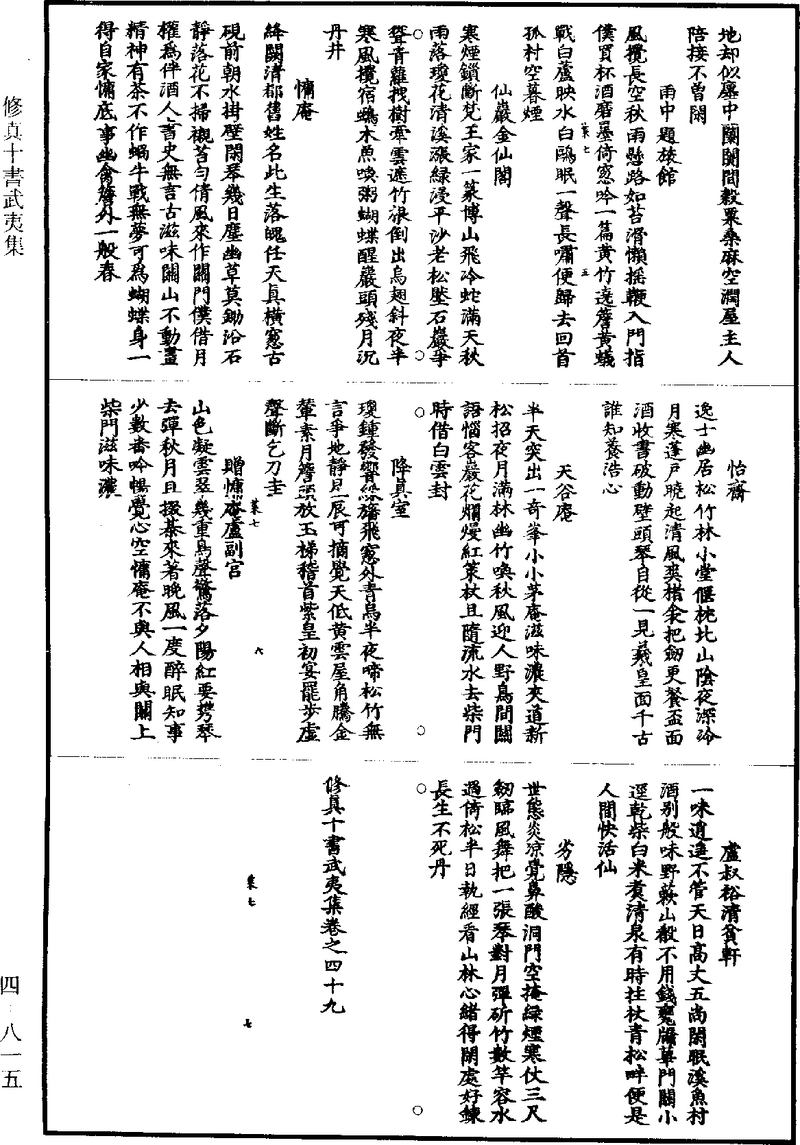 地却似塵中闤闠間穀粟桑麻空潤屋主人
陪接不曾閑
雨中題旅館
風攪長空秋雨懸路如苔滑懶摇鞭入門指
僕買杯酒磨墨倚窓吟一篇黃竹遶簷黃蟻
戰白蘆映水白鷗眠一聲長嘯便歸去回首
孤村空暮煙
仙巖金仙閣
寒煙鎖斷梵王家一篆博山飛冷蛇滿天秋
雨落瓊花清溪漲綠浸平沙老松墜石巖爭
聳青蘿拽樹牽雲遮竹根倒出烏翅斜夜半
寒風攪宿鴉木魚喚粥蝴蝶醒巖頭殘月沉
丹井
慵庵
絳闕清都舊姓名此生落魄任天真橫窓古
硯前朝水掛壁閑琴幾日塵幽草莫鋤沿石
靜落花不掃襯苔勻倩風來作關門僕借月
權爲伴酒人書史無言古滋味關山不動畫
精神有茶不作蝸牛戰無夢可爲蝴蝶身一
得自家慵底事幽禽簷外一般春
怡齋
逸士幽居松竹林小堂偃枕北山陰夜深冷
月寒蓬戶曉起清風爽楮衾把劒更餐盃面
酒收書破動壁頭琴自從一見羲皇面千古
誰知養浩心
天谷庵
半天突出一奇峯小小茅庵滋味濃夾道新
松招夜月滿林幽竹喚秋風迎人野鳥間關
語惱客巖花爛熳紅策杖且隨流水去柴門
時借白雲封
降真室
瓊鍾發響綵旛飛窓外青鳥半夜啼松竹無
言爭地靜星辰可摘覺天低黃雲屋角騰金
輦素月簷頭放玉梯稽首紫皇初宴罷步虛
聲斷乞刀圭
贈慵庵盧副宫
山色凝雲翠幾重鳥聲驚落夕陽紅要携琴
去彈秋月且掇棊來著晚風一度醉眠知事
少數番吟暢覺心空慵庵不與人相與關上
柴門滋味濃
盧叔裕清貧軒
一味逍遙不管天日高丈五尚閑眠溪魚村
酒别般味野蔌山殽不用錢甕牖蓽門關小
逕乾柴白米煑清泉有時拄杖青松畔便是
人間快活仙
劣隱
世態炎凉覺鼻酸洞門空掩綠煙寒仗三尺
劒臨風舞把一張琴對月彈斫竹數竿容水
過倚松半日執經看山林心緒得閑處好鍊
長生不死丹
修真十書武夷集卷之四十九
修真十書武夷集
四·八一五